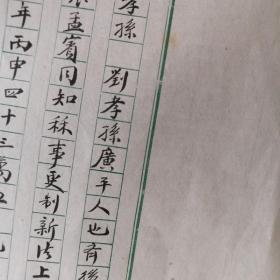 孝孫　劉孝孫廣平人也有後
孟賓同知秝事更制新法上
年丙申四十三萬五